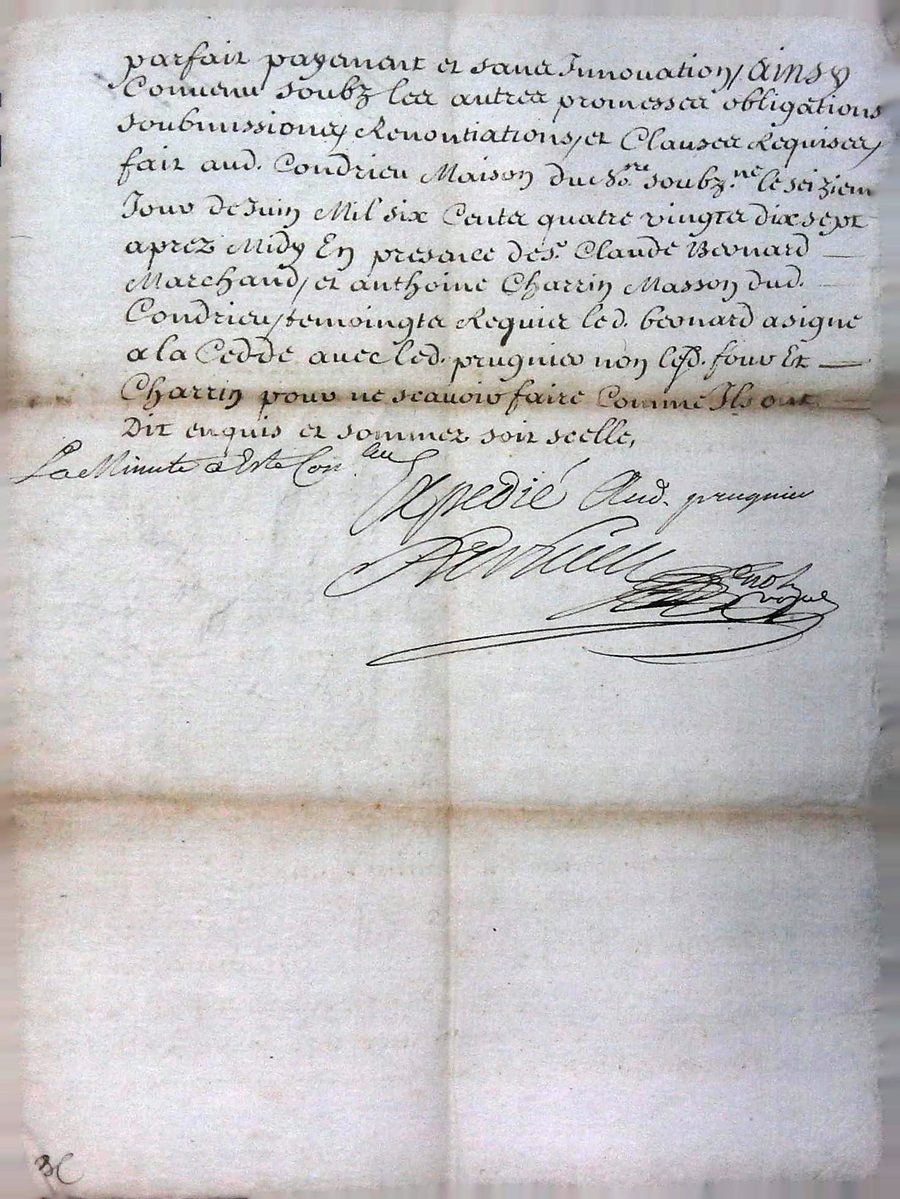 parfait payement et sans Innovation, Ainsy
Convenu soubz les autres promesses obligations
soubmissions, Renontiations, et Clauses Requises,
fait aud. Condrieu Maison du No.re soubz.né le seiziem
Jour de Juin Mil six Cents quatre vingts dix sept
aprez Midy En presence de s.r Claude Beonard
Marchand, et anthoine Charrin Masson dud.
Condrieu, temoingts Requis led. beonard a signé
a la Cedde avec led. prugnier non lesd. four Et
Charrin pour ne scavoir faire Comme Ils ont
Dit enquis et sommez soit scellé,
La Minute a Esté Con.lée
Expedié Aud. prugnier
not. royal